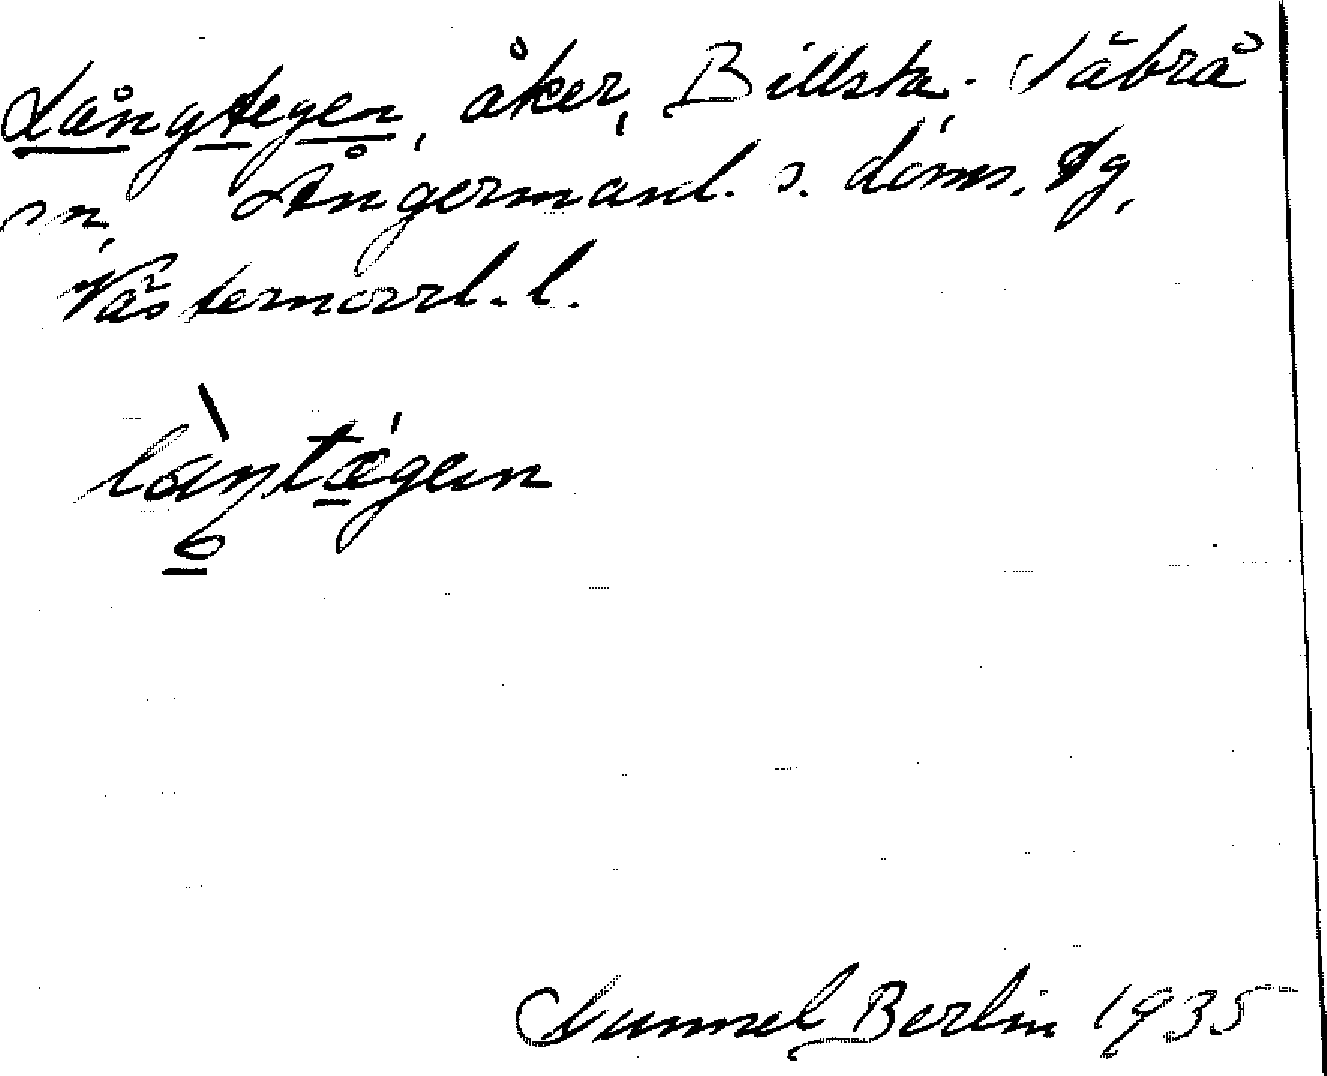 Långtegen, åker, Billsta, Säbrå
sn, Ångermanl. s. doms. tg,
Västernorrl. l.
làŋtægen
Gunnel Berlin 1935